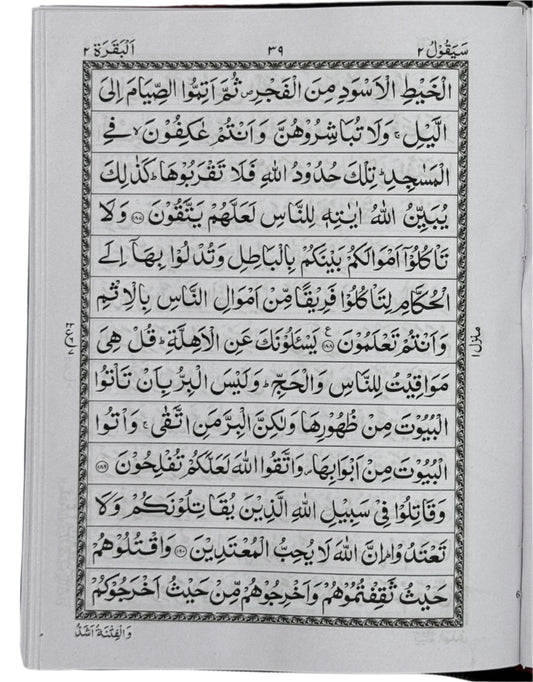 سَيَقُوْلُ ٢ ٣٩ اَلْبَقَرَة ٢
الْخَيْطِ الْاَسْوَدِ مِنَ الْفَجْرِ۪ ثُمَّ اَتِمُّوا الصِّيَامَ اِلَى
الَّيْلِ ۚ وَلَا تُبَاشِرُوْهُنَّ وَاَنْتُمْ عٰكِفُوْنَ ۙ فِي
الْمَسٰجِدِ ؕ تِلْكَ حُدُوْدُ اللّٰهِ فَلَا تَقْرَبُوْهَا ؕ كَذٰلِكَ
يُبَيِّنُ اللّٰهُ اٰيٰتِهٖ لِلنَّاسِ لَعَلَّهُمْ يَتَّقُوْنَ ﴿۱۸۷﴾ وَلَا
تَاْكُلُوْۤا اَمْوَالَكُمْ بَيْنَكُمْ بِالْبَاطِلِ وَتُدْلُوْا بِهَاۤ اِلَى
الْحُكَّامِ لِتَاْكُلُوْا فَرِيْقًا مِّنْ اَمْوَالِ النَّاسِ بِالْاِثْمِ
وَاَنْتُمْ تَعْلَمُوْنَ ﴿۱۸۸﴾ ع يَسْـَٔلُوْنَكَ عَنِ الْاَهِلَّةِ ؕ قُلْ هِيَ
مَوَاقِيْتُ لِلنَّاسِ وَالْحَجِّ ؕ وَلَيْسَ الْبِرُّ بِاَنْ تَاْتُوا
الْبُيُوْتَ مِنْ ظُهُوْرِهَا وَلٰكِنَّ الْبِرَّ مَنِ اتَّقٰى ۚ وَاْتُوا
الْبُيُوْتَ مِنْ اَبْوَابِهَا ۪ وَاتَّقُوا اللّٰهَ لَعَلَّكُمْ تُفْلِحُوْنَ ﴿۱۸۹﴾
وَقَاتِلُوْا فِيْ سَبِيْلِ اللّٰهِ الَّذِيْنَ يُقَاتِلُوْنَكُمْ وَلَا
تَعْتَدُوْا ؕ اِنَّ اللّٰهَ لَا يُحِبُّ الْمُعْتَدِيْنَ ﴿۱۹۰﴾ وَاقْتُلُوْهُمْ
حَيْثُ ثَقِفْتُمُوْهُمْ وَاَخْرِجُوْهُمْ مِّنْ حَيْثُ اَخْرَجُوْكُمْ
وَالْفِتْنَةُ اَشَدُّ
منزل ۱